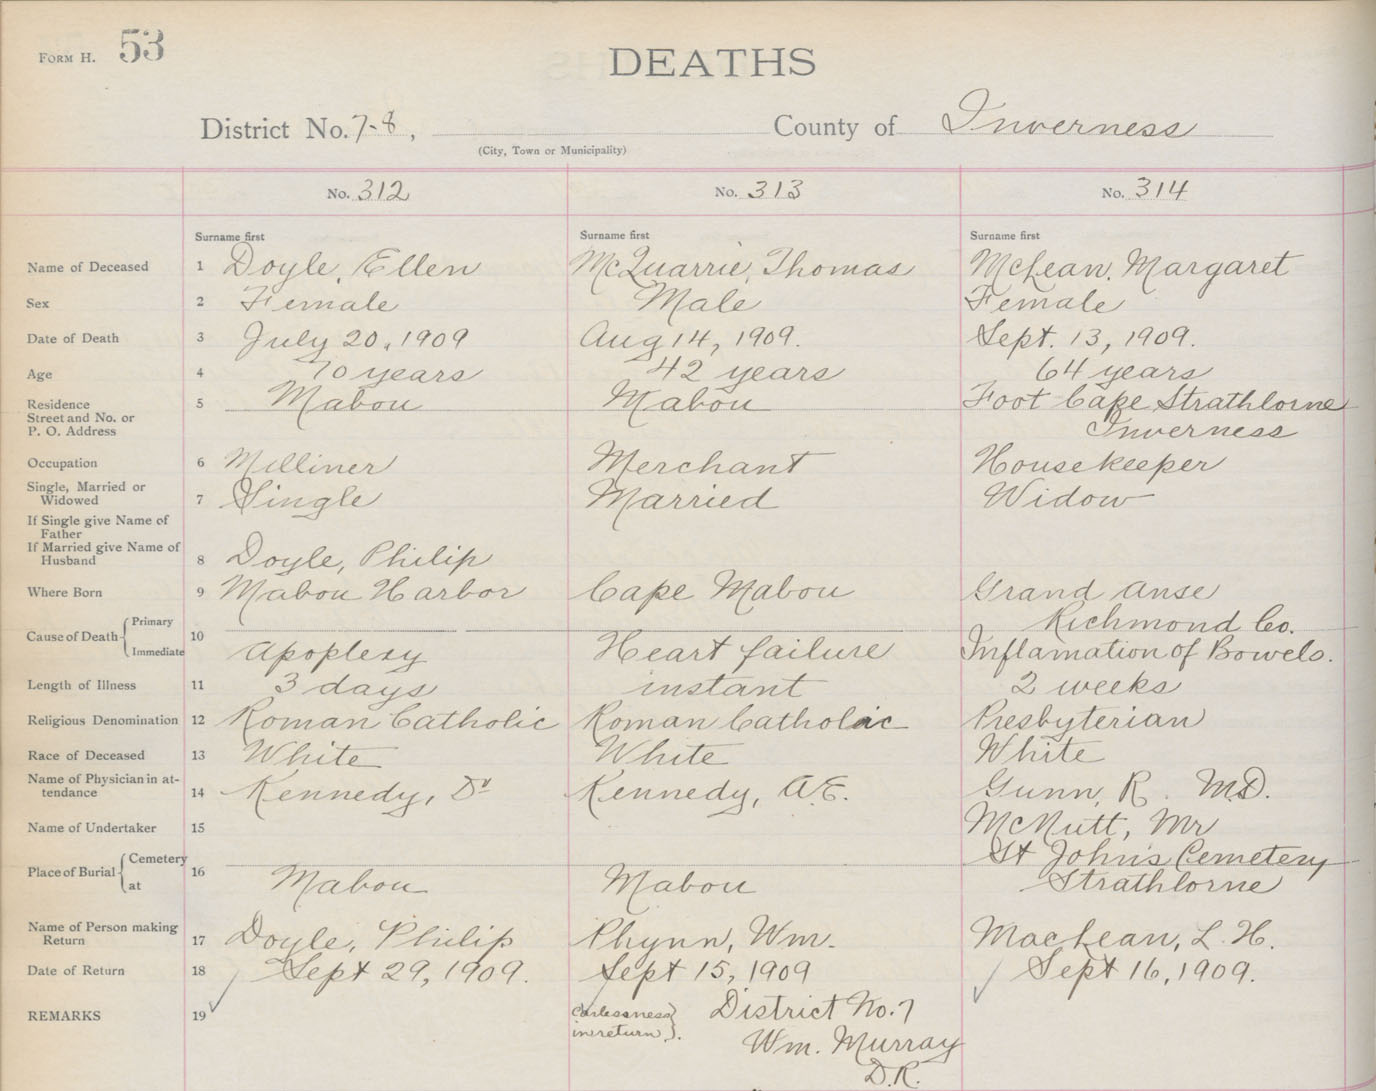 FORM H. 53
DEATHS
District No. 7-8, County of Inverness
(City, Town or Municipality)
No. 312 No. 313 No. 314
Surname first Surname first Surname first
Name of Deceased 1 Doyle, Ellen McQuarrie, Thomas McLean, Margaret
Sex 2 Female Male Female
Date of Death 3 July 20, 1909 Aug 14, 1909. Sept. 13, 1909.
Age 4 70 years 42 years 64 years
Residence 5 Mabou Mabou Foot Cape Strathlorne
Street and No. or
P. O. Address Inverness
Occupation 6 Milliner Merchant Housekeeper
Single, Married or
Widowed 7 Single Married Widow
If Single give Name of
Father
If Married give Name of
Husband 8 Doyle, Philip
Where Born 9 Mabou Harbor Cape Mabou Grand Anse
Richmond Co.
Cause of Death Primary 10
Immediate Apoplexy Heart failure Inflamation of Bowels.
Length of Illness 11 3 days instant 2 weeks
Religious Denomination 12 Roman Catholic Roman Catholic Presbyterian
Race of Deceased 13 White White White
Name of Physician in at-
tendance 14 Kennedy, Dr Kennedy, A.E. Gunn, R. M.D.
Name of Undertaker 15 McNutt, Mr
Place of Burial Cemetery 16 St John's Cemetery
at Mabou Mabou Strathlorne
Name of Person making
Return 17 Doyle, Philip Phynn, Wm. MacLean, L. H.
Date of Return 18 Sept 29, 1909. Sept 15, 1909 Sept 16, 1909.
REMARKS 19 carlessness District No. 7
in return. Wm. Murray
D.R.